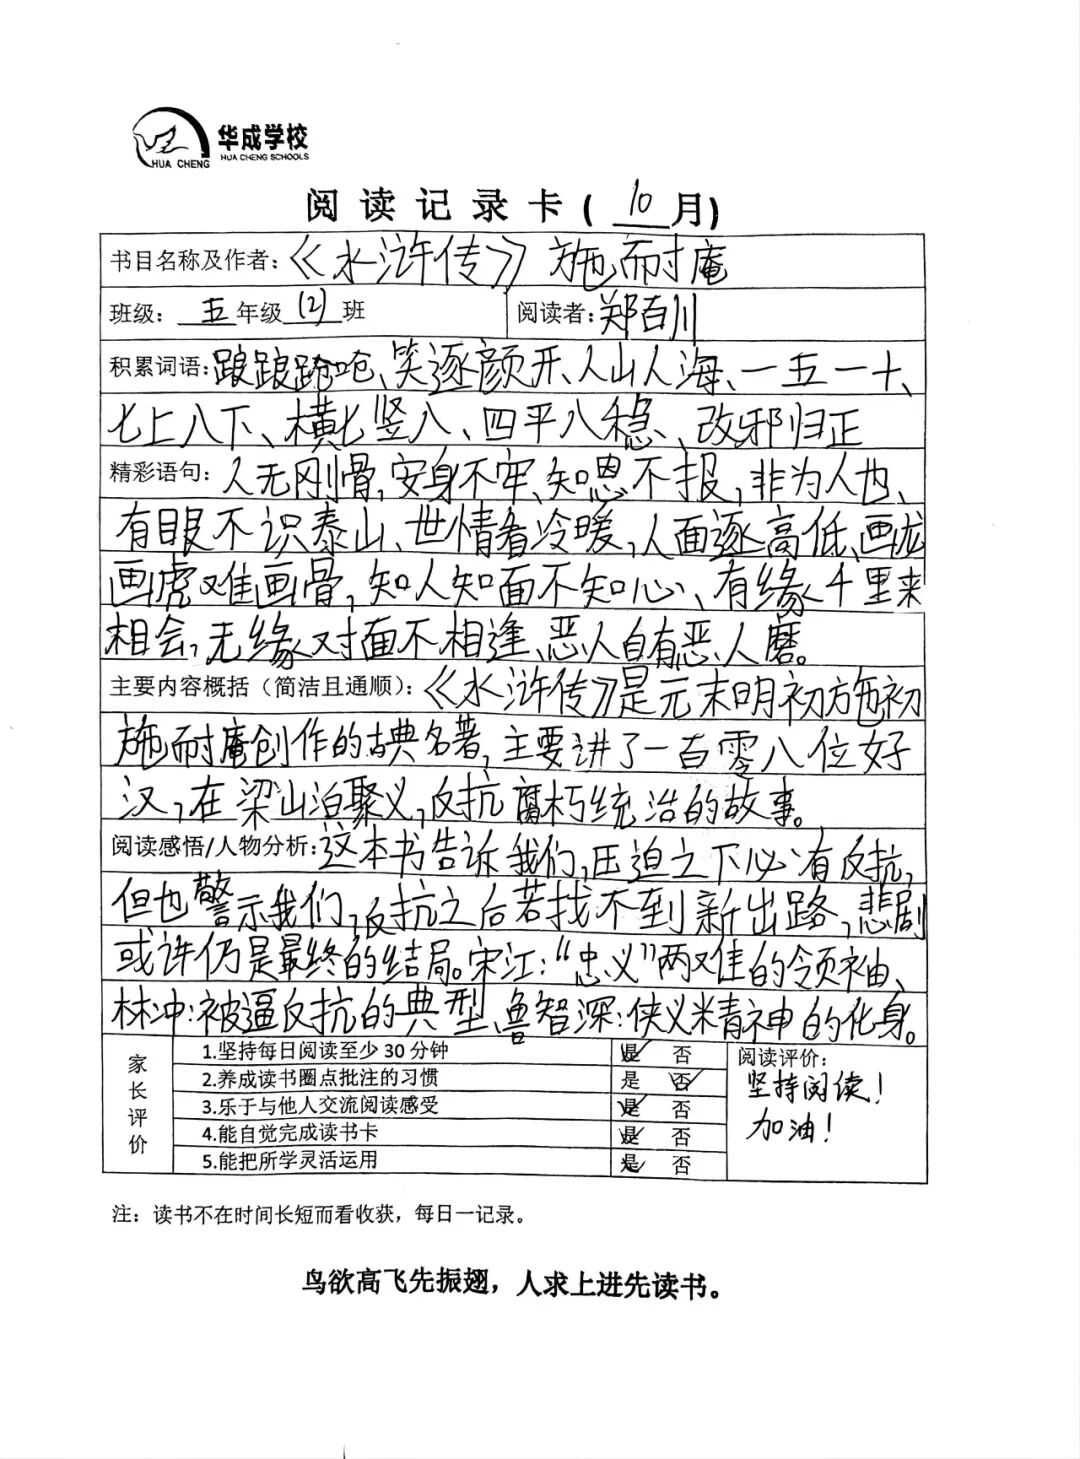 华成学校
HUA CHENG SCHOOLS
HUA CHENG
阅读记录卡(10月)
书目名称及作者:《水浒传》施耐庵
班级:五年级(2)班 阅读者:郑百川
积累词语:踉踉跄呛、笑逐颜开、人山人海、一五一十、
七上八下、横七竖八、四平八稳、改邪归正
精彩语句:人无刚骨,安身不牢、知恩不报,非为人也、
有眼不识泰山、世情看冷暖,人面逐高低、画龙
画虎难画骨,知人知面不知心、有缘千里来
相会,无缘对面不相逢、恶人自有恶人磨。
主要内容概括(简洁且通顺):《水浒传》是元末明初施初
施耐庵创作的古典名著,主要讲了一百零八位好
汉,在梁山泊聚义,反抗腐朽统治的故事。
阅读感悟/人物分析:这本书告诉我们,压迫之下必有反抗,
但也警示我们,反抗之后若找不到新出路,悲剧
或许仍是最终的结局。宋江:“忠义”两难的领袖、
林冲:被逼反抗的典型、鲁智深:侠义精神的化身。
家长评价
1.坚持每日阅读至少30分钟 是 否
2.养成读书圈点批注的习惯 是 否
3.乐于与他人交流阅读感受 是 否
4.能自觉完成读书卡 是 否
5.能把所学灵活运用 是 否
阅读评价:
坚持阅读!
加油!
注:读书不在时间长短而看收获,每日一记录。
鸟欲高飞先振翅,人求上进先读书。